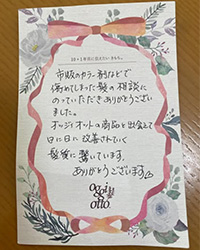 市販のカラー剤などで
傷めてしまった髪の相談に
のっていただきありがとうござい
ました。
オッジィオットの商品と出会えて
日に日に改善されていく
髪質に驚いています。
ありがとうございます
oggi
otto